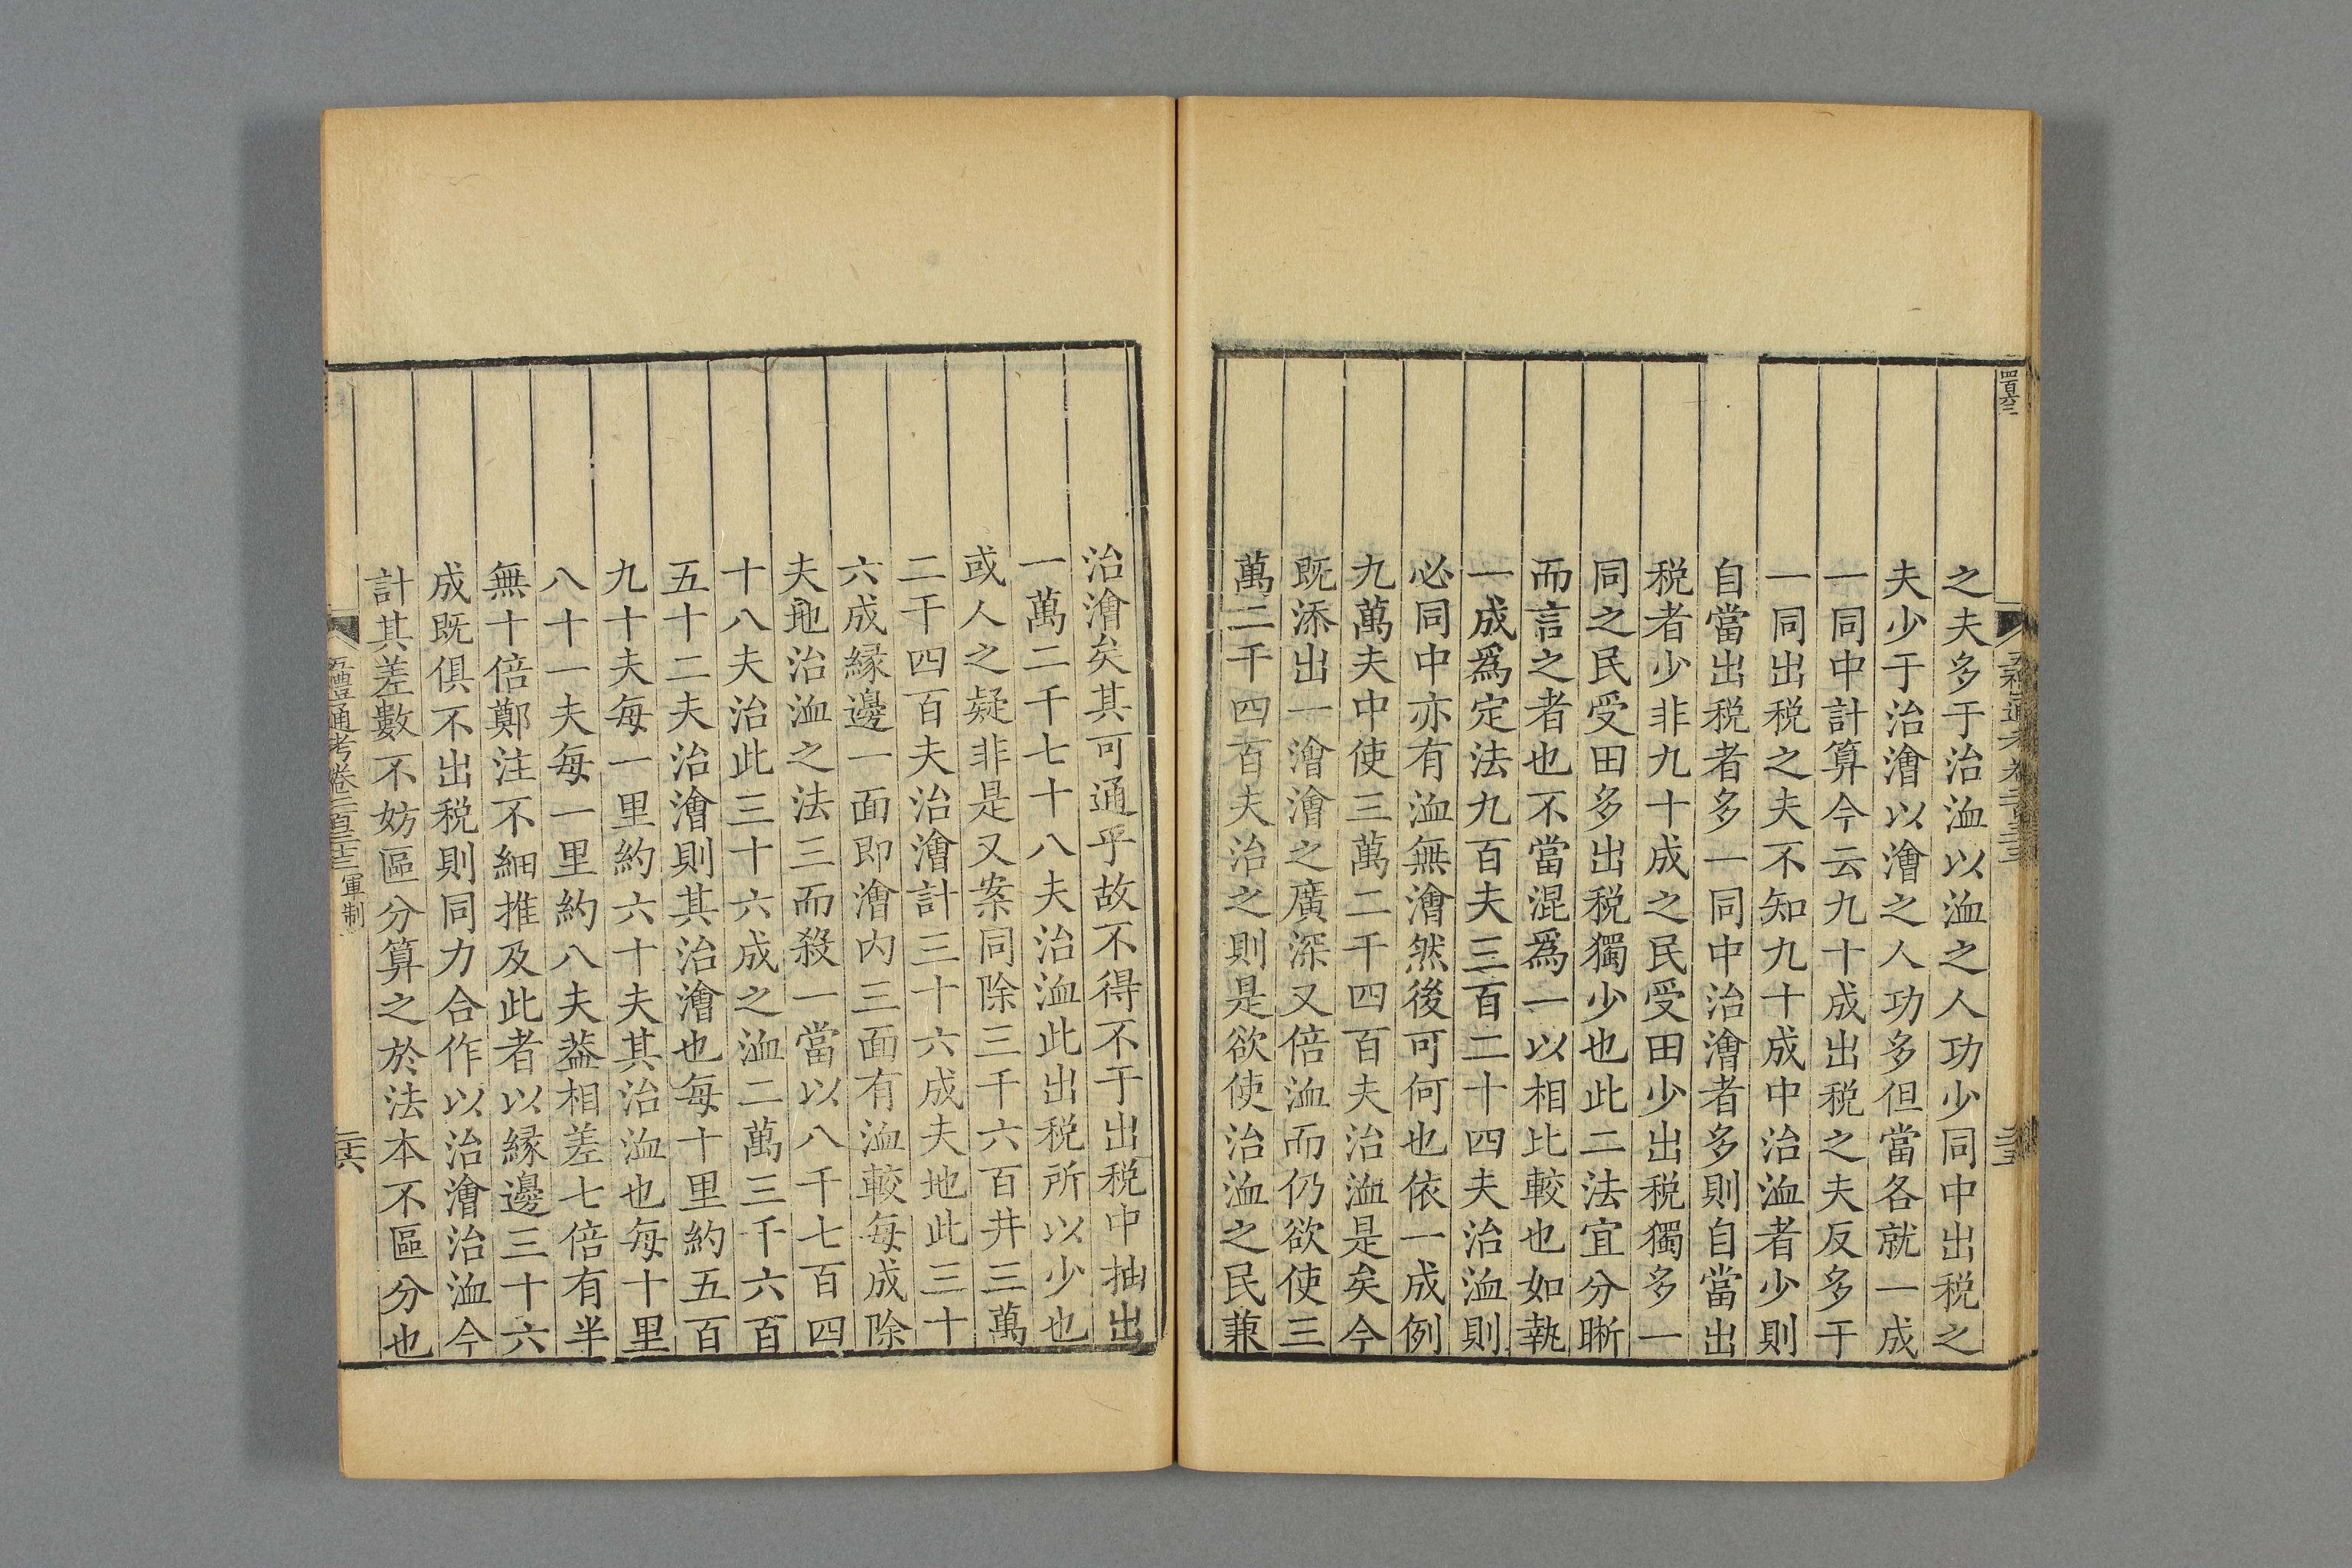 之夫多于治洫以洫之人功少同中出税之
夫少于治澮以澮之人功多但當各就一成
一同中計算今云九十成出税之夫反多于
一同出税之夫不知九十成中治洫者少則
自當出税者多一同中治澮者多則自當出
税者少非九十成之民受田少出税獨多一
同之民受田多出税獨少也此二法宜分晣
而言之者也不當混爲一以相比較也如執
一成爲定法九百夫三百二十四夫治洫則
必同中亦有洫無澮然後可何也依一成例
九萬夫中使三萬二千四百夫治洫是矣今
既添出一澮澮之廣深又倍洫而仍欲使三
萬二千四百夫治之則是欲使治洫之民兼
治澮矣其可通乎故不得不于出税中抽出
一萬二千七十八夫治洫此出税所以少也
或人之疑非是又案同除三千六百井三萬
二千四百夫治澮計三十六成夫地此三十
六成縁邊一面即澮内三面有洫較每成除
夫地治洫之法三而殺一當以八千七百四
十八夫治此三十六成之洫二萬三千六百
五十二夫治澮則其治澮也每十里約五百
九十夫每一里約六十夫其治洫也每十里
八十一夫每一里約八夫葢相差七倍有半
無十倍鄭注不細推及此者以縁邊三十六
成既俱不出税則同力合作以治澮治洫今
計其差數不妨區分算之於法本不區分也
五禮通考卷二百三十三 軍制